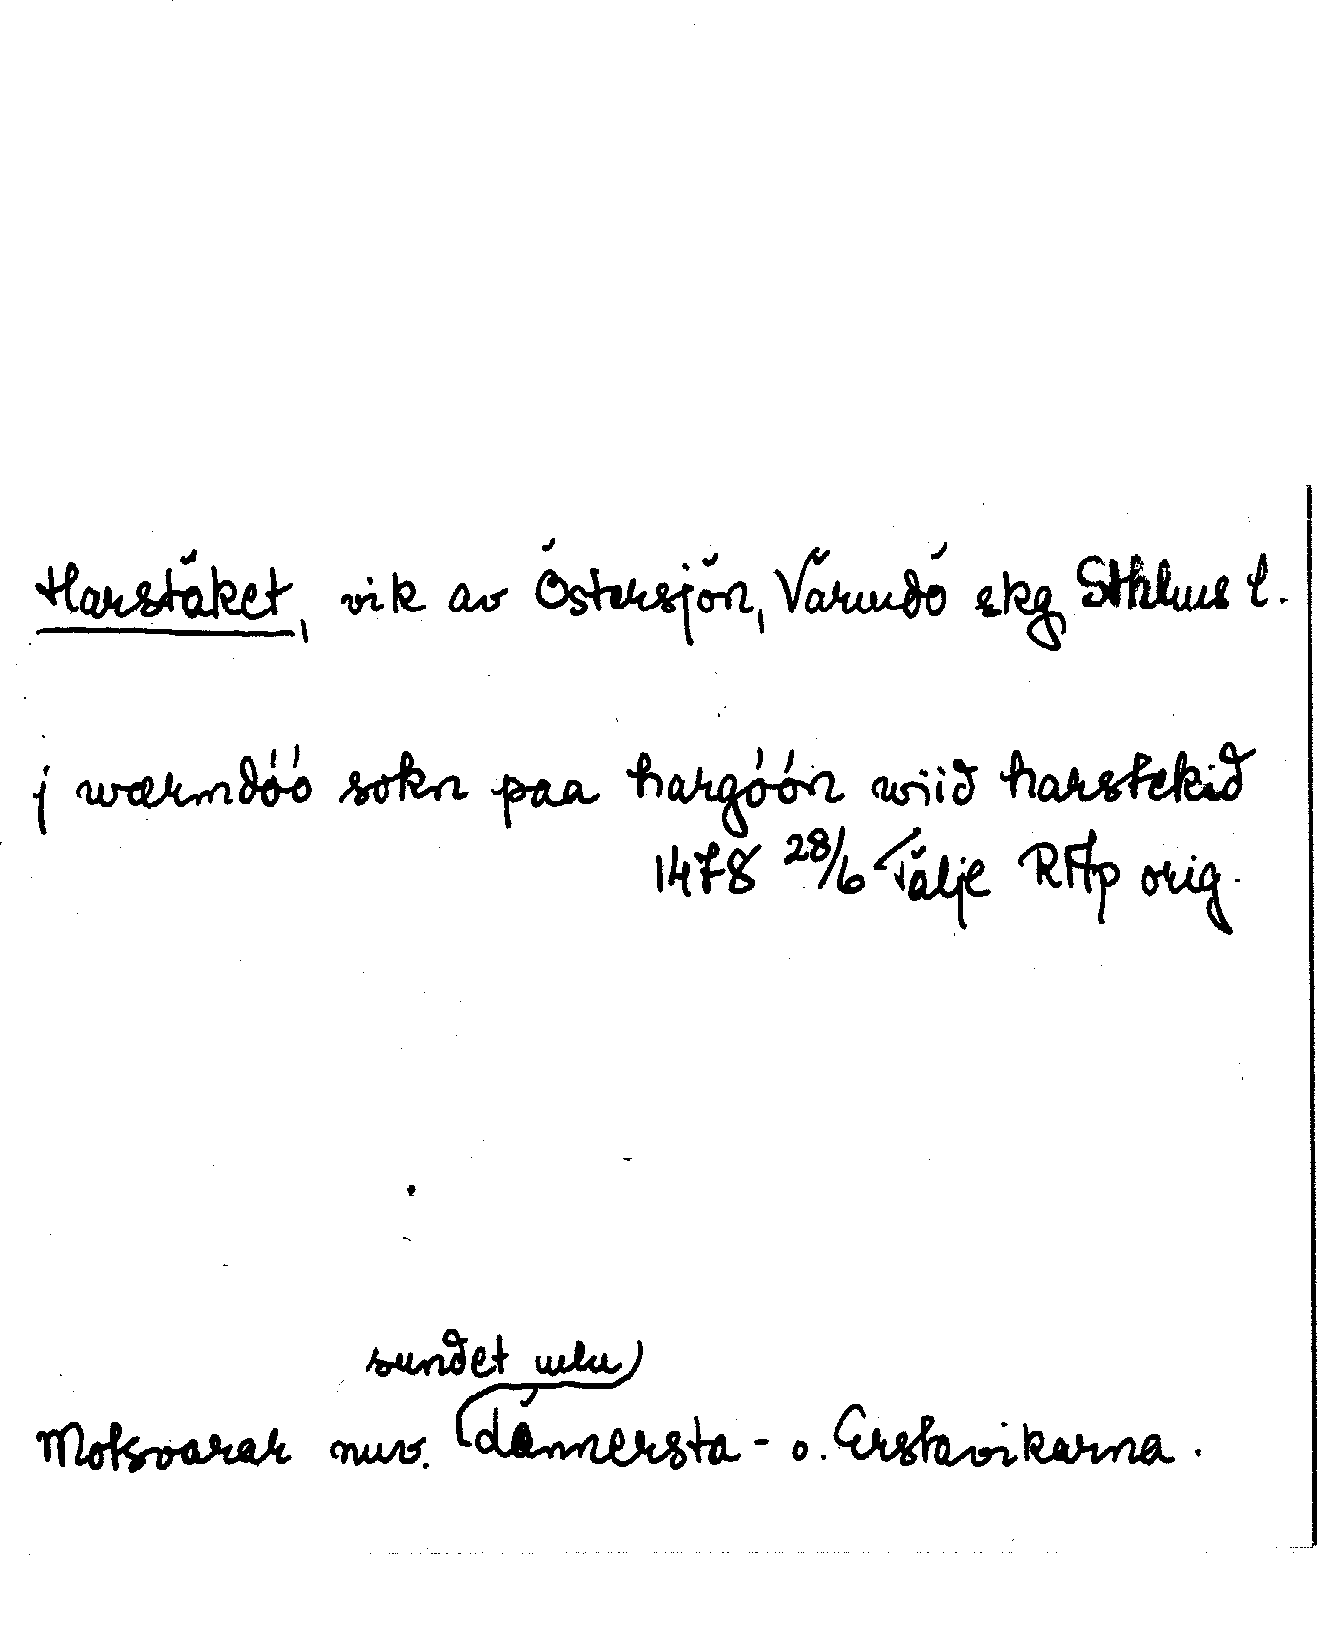 Harstäket, vik av Östersjön, Värmdö skg Sthlms l.
j wærmdöö sokn paa hargöön wiid harstekid
1478 28/6 Tälje RAp orig.
sundet mlu
Motsvarar nuv. Lännersta- o. Erstavikarna.